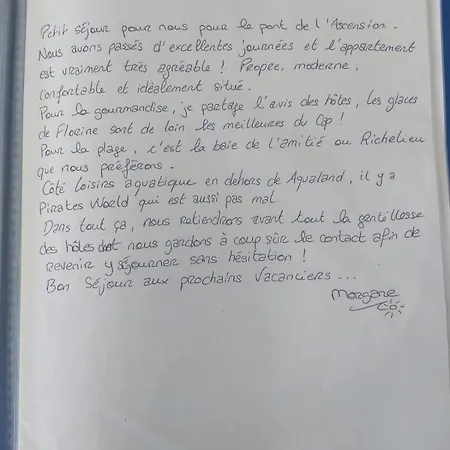 Petit séjour pour nous pour le pont de l'Ascension.
Nous avons passés d'excellentes journées et l'appartement
est vraiment très agréable ! Propre, moderne,
confortable et idéalement situé.
Pour la gourmandise, je partage l'avis des hôtes, les glaces
de Florine sont de loin les meilleures du Cap !
Pour la plage, c'est la baie de l'amitié ou Richelieu
que nous préférons.
Côté loisirs aquatique en dehors de Aqualand, il y a
Pirates World qui est aussi pas mal.
Dans tout ça, nous retiendrons avant tout la gentillesse
des hôtes dont nous gardons à coup sûr le contact afin de
revenir y séjourner sans hésitation !
Bon séjour aux prochains vacanciers ...
Morgane